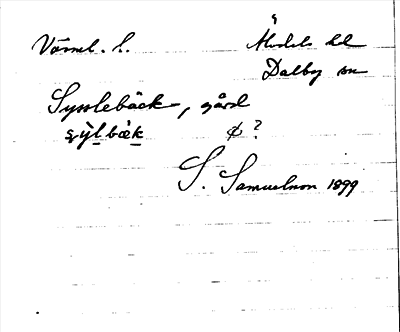 Värml. l. Älvdals hd
Dalby sn
Sysslebäck, gård
¢ ?
S. Samuelsson 1899